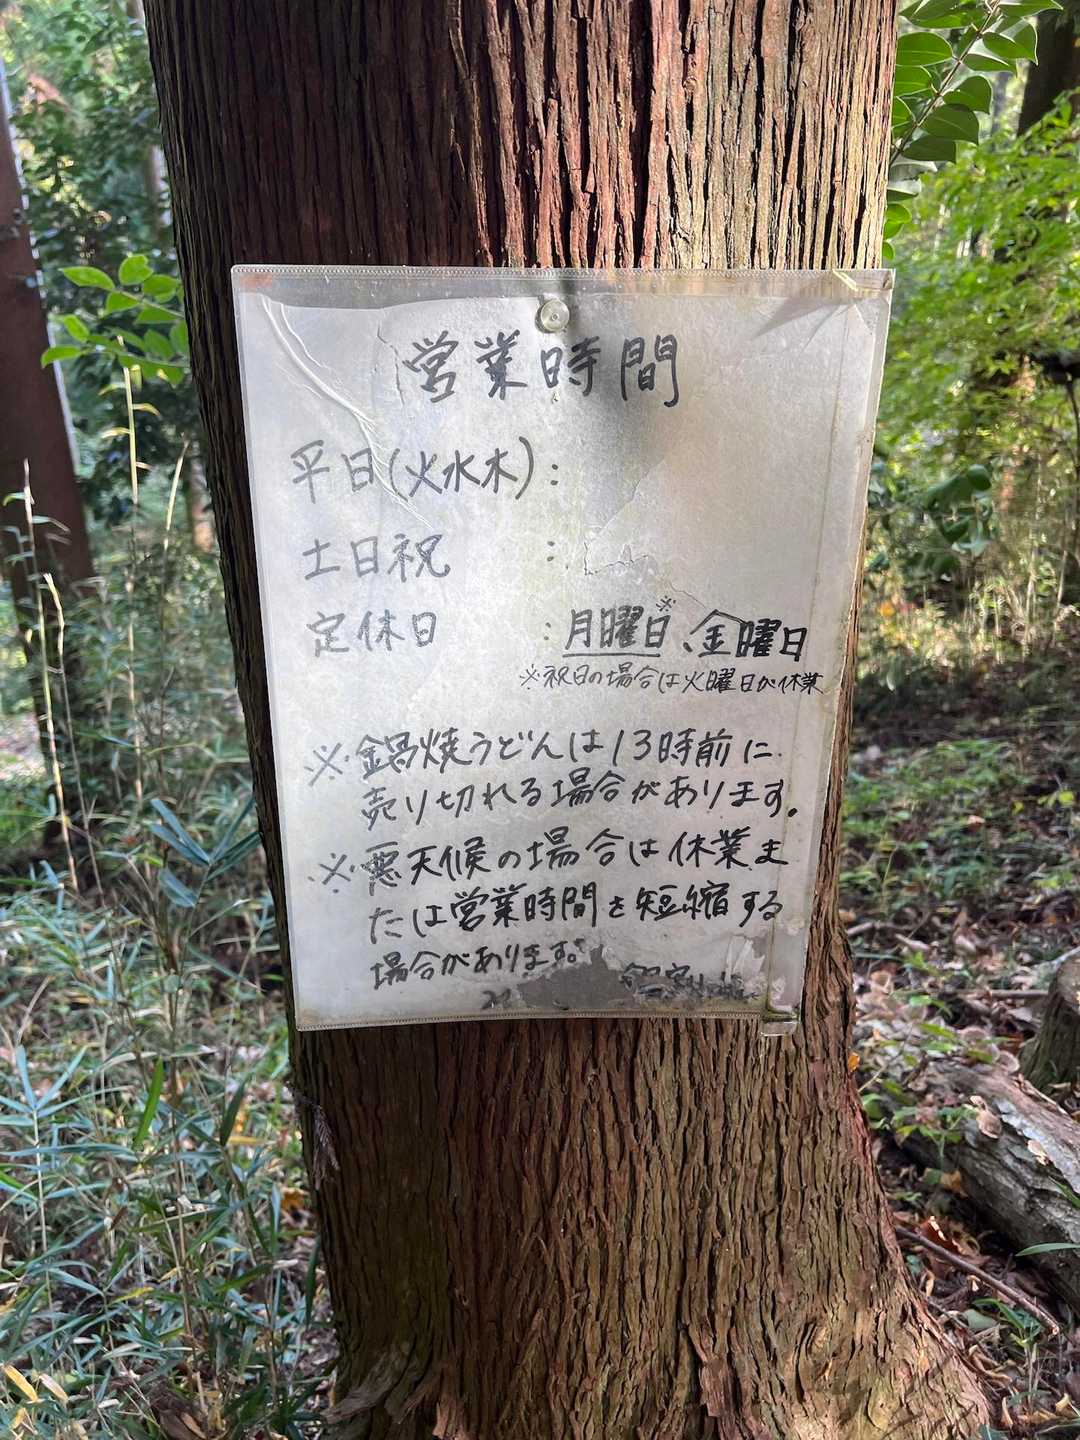 営業時間
平日(火水木):
土日祝 :
定休日 :月曜日※、金曜日
※祝日の場合は火曜日が休業
※鍋焼うどんは13時前に
売り切れる場合があります。
※悪天候の場合は休業ま
たは営業時間を短縮する
場合があります。